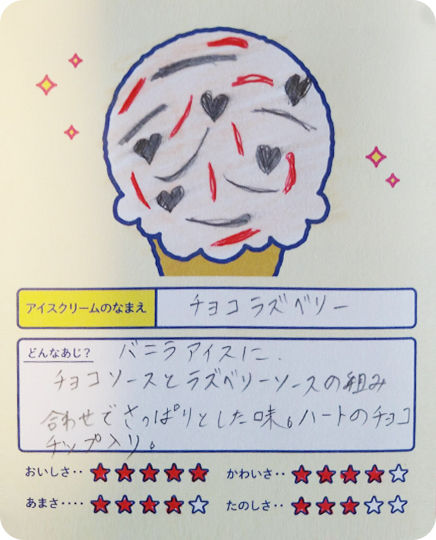 アイスクリームのなまえ
チョコラズベリー
どんなあじ?
バニラアイスに、
チョコソースとラズベリーソースの組み
合わせでさっぱりとした味。ハートのチョコ
チップ入り。
おいしさ‥ ★★★★★ かわいさ‥ ★★★★☆
あまさ‥‥ ★★★★☆ たのしさ‥ ★★★☆☆